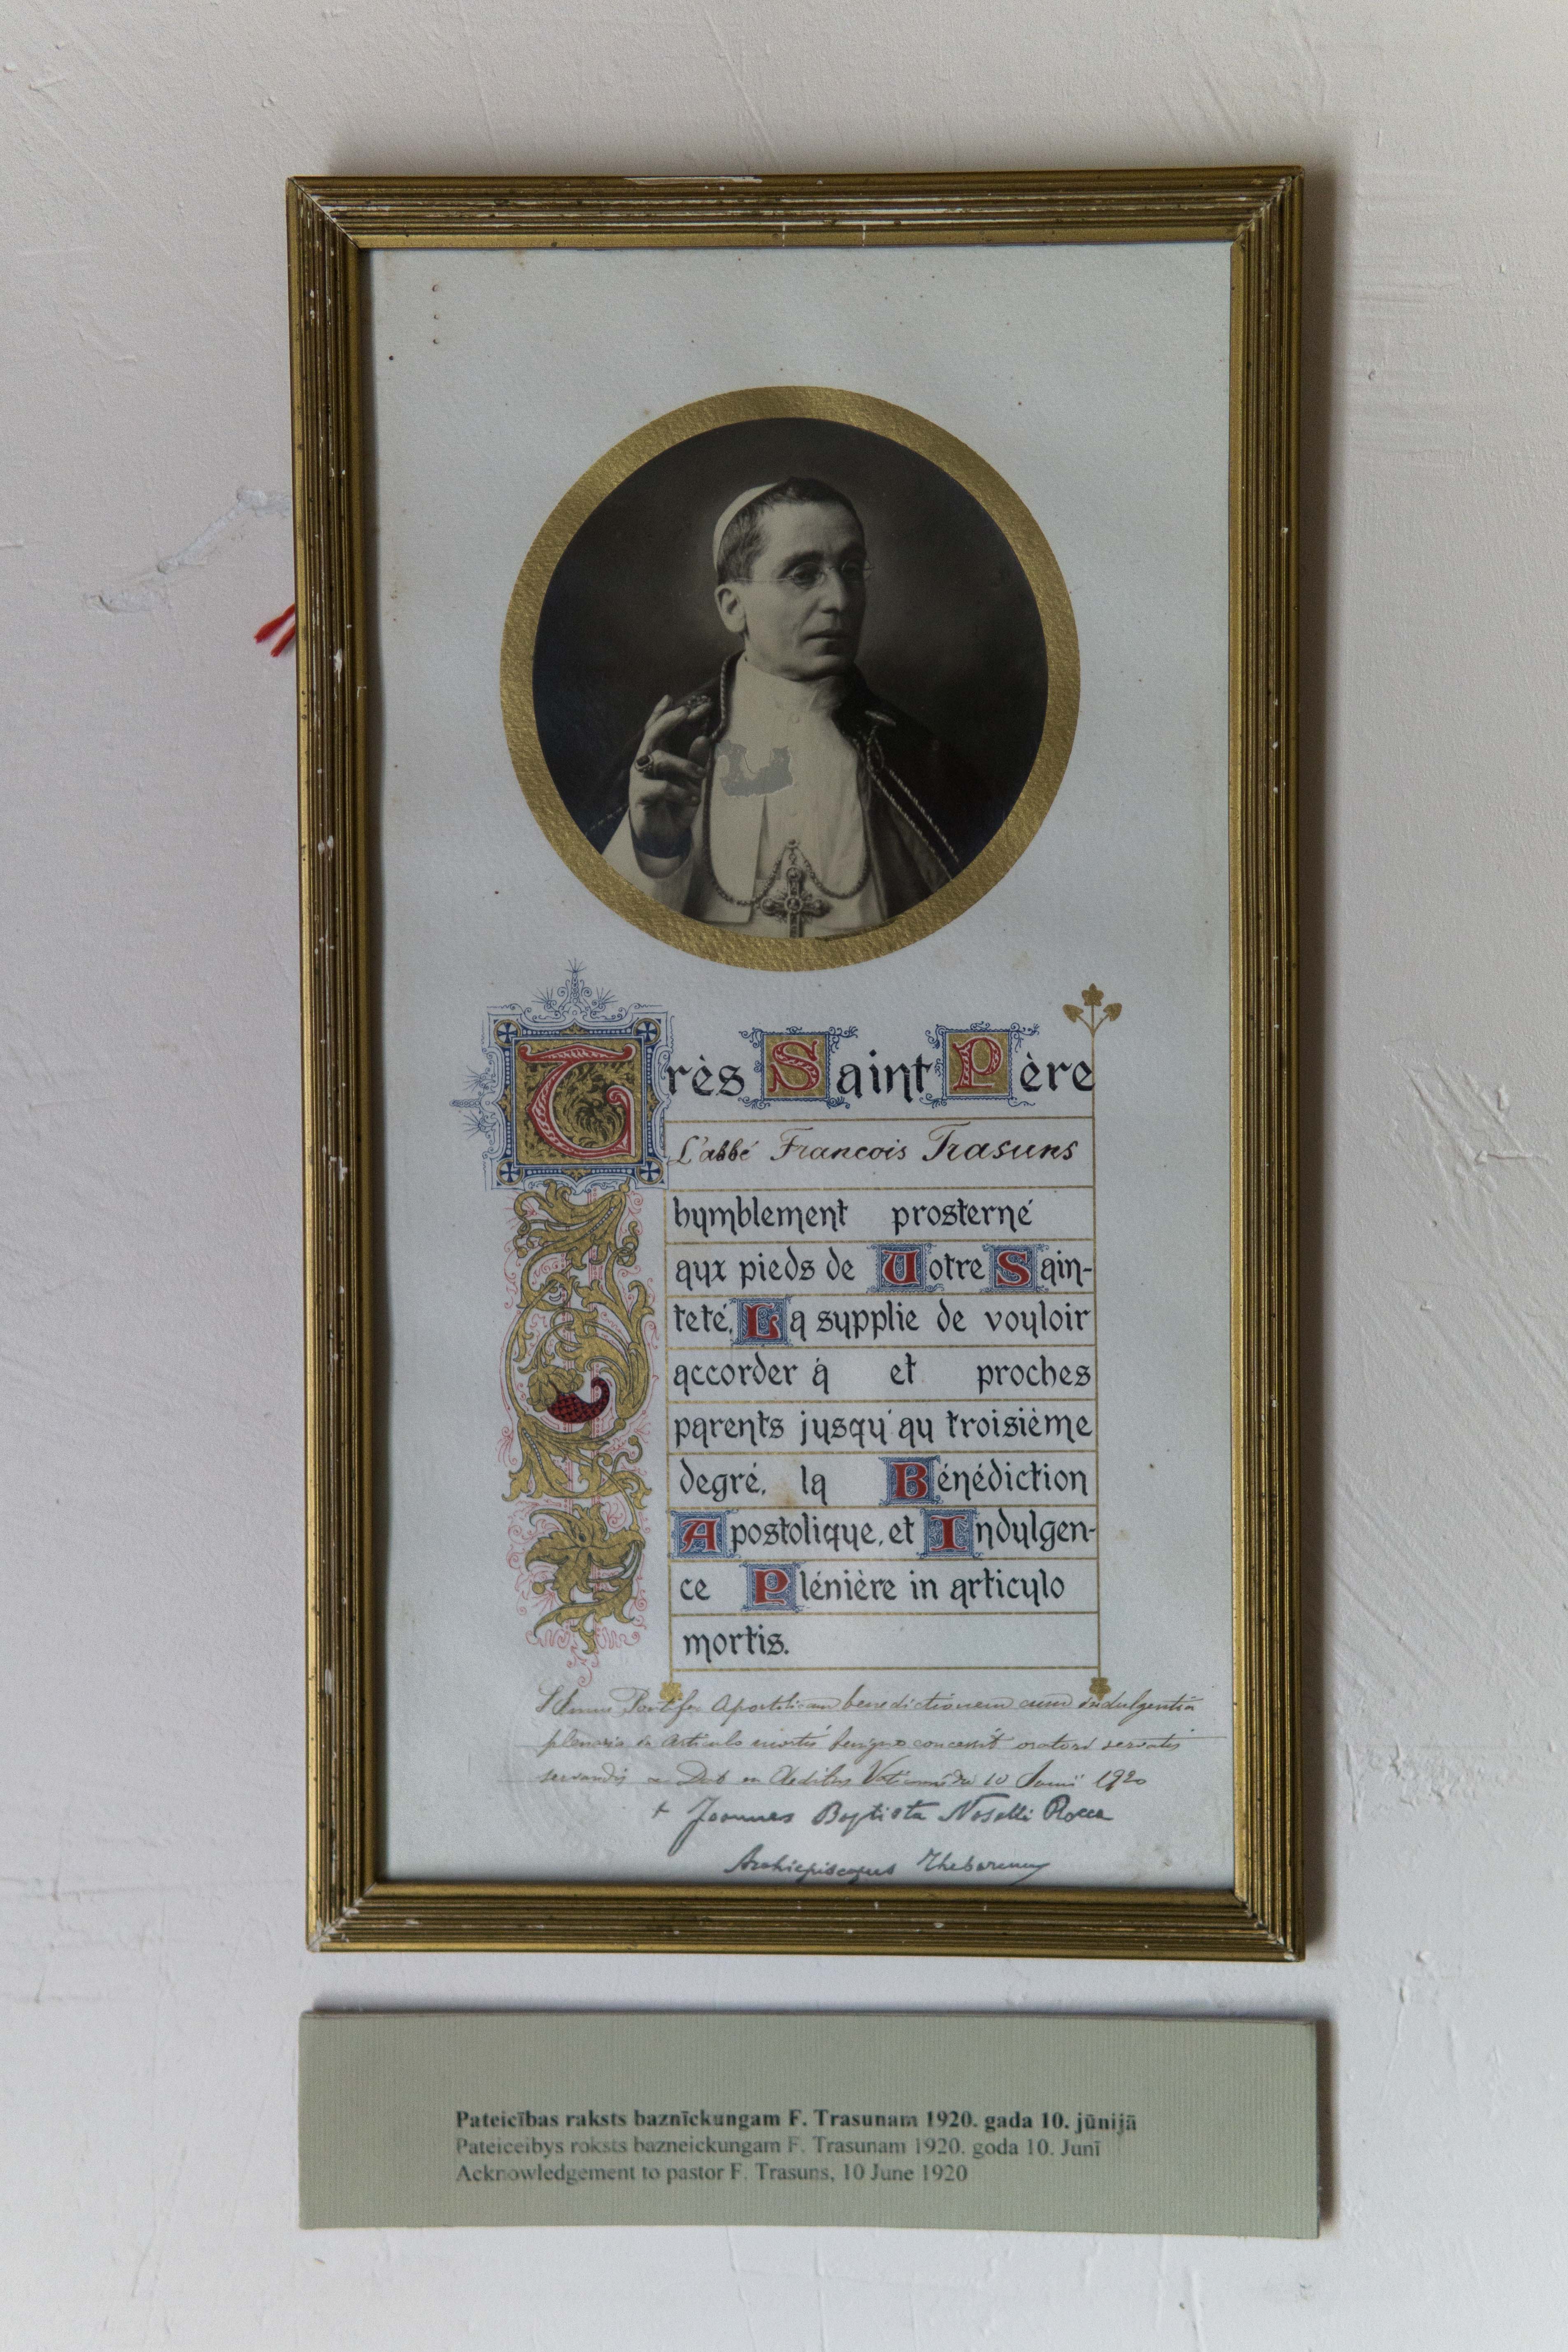 Très Saint Père
L'abbé Francois Trasuns
humblement prosterné
aux pieds de Votre Sain-
teté, La supplie de vouloir
accorder à et proches
parents jusqu'au troisième
degré, la Bénédiction
Apostolique, et Indulgen-
ce Plénière in articulo
mortis.
Pontifex Apostolicam benedictionem cum indulgentia
plenaria in Articulo mortis benigne concessit oratori servatis
servandis Dat ex Aedibus 10 Junii 1920
+ Joannes Baptista Naselli Rocca
Archiepiscopus Thebarum
Pateicības raksts baznīckungam F. Trasunam 1920. gada 10. jūnijā
Pateiceibys roksts bazneickungam F. Trasunam 1920. goda 10. Junī
Acknowledgement to pastor F. Trasuns, 10 June 1920